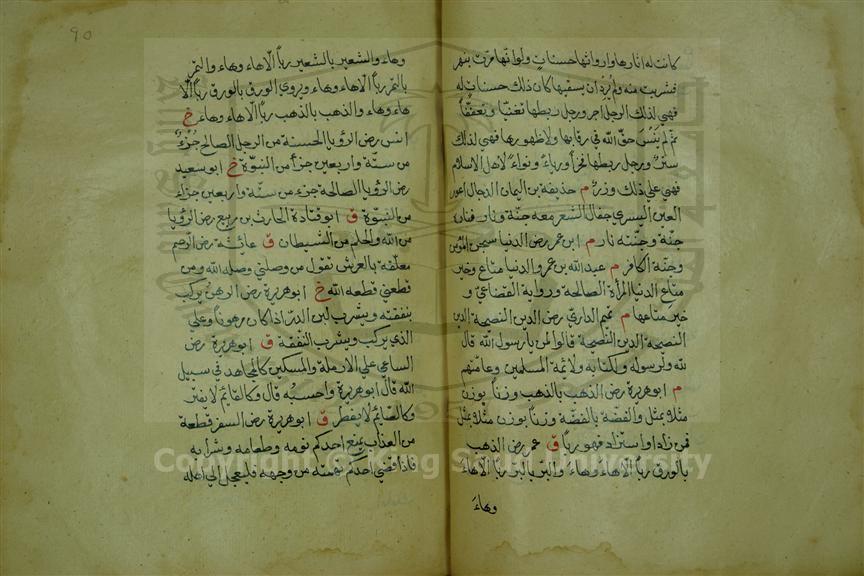 كانت له اثارها وارواثها حسنات ولو انها مرت بنهر
فشربت منه ولم يرد ان يسقيها كان ذلك حسنات له
فهي لذلك الرجل اجر ورجل ربطها تغنيا وتعففا
ثم لم ينس حق الله في رقابها ولا ظهورها فهي لذلك
ستر ورجل ربطها فخرا ورياء ونواء لاهل الاسلام
فهي علي ذلك وزر م حذيفة بن اليمان الدجال اعور
العين اليسري جفال الشعر معه جنة ونار فناره
جنة وجنته نار م ابن عمر رض الدنيا سجن المؤمن
وجنة الكافر م عبد الله بن عمرو الدنيا متاع وخير
متاع الدنيا المرأة الصالحة ورواية القضاعي و
خير متاعها م تميم الداري رض الدين النصيحة الدين
النصيحة الدين النصيحة قالوا لمن يا رسول الله قال
لله ولرسوله ولكتابه ولائمة المسلمين وعامتهم
م ابوهريرة رض الذهب بالذهب وزنا بوزن
مثلا بمثل والفضة بالفضة وزنا بوزن مثلا بمثل
فمن زاد او استزاد فهو ربا ق عمر رض الذهب
بالورق ربا الا هاء وهاء والبر بالبر ربا الا هاء
وهاء
90
وهاء والشعير بالشعير ربا الا هاء وهاء والتمر
بالتمر ربا الا هاء وهاء ويروي الورق بالورق ربا الا
هاء وهاء والذهب بالذهب ربا الا هاء وهاء خ
انس رض الرؤيا الحسنة من الرجل الصالح جزء
من ستة واربعين جزأ من النبوة خ ابو سعيد
رض الرؤيا الصالحة جزء من ستة واربعين جزاء
من النبوة ق ابو قتادة الحارث بن ربعي رض الرؤيا
من الله والحلم من الشيطان ق عائشة رض الرحم
معلقة بالعرش تقول من وصلني وصله الله ومن
قطعني قطعه الله خ ابوهريرة رض الرهن يركب
بنفقته ويشرب لبن الدر اذا كان مرهونا وعلي
الذي يركب ويشرب النفقة ق ابوهريرة رض
الساعي علي الارملة والمسكين كالمجاهد في سبيل
الله قال ابوهريرة واحسبه قال وكالقائم لا يفتر
وكالصائم لا يفطر ق ابوهريرة رض السفر قطعة
من العذاب يمنع احدكم نومه وطعامه وشرابه
فاذا قضي احدكم نهمته من وجهه فليعجل الي اهله
Copyright © King Saud University